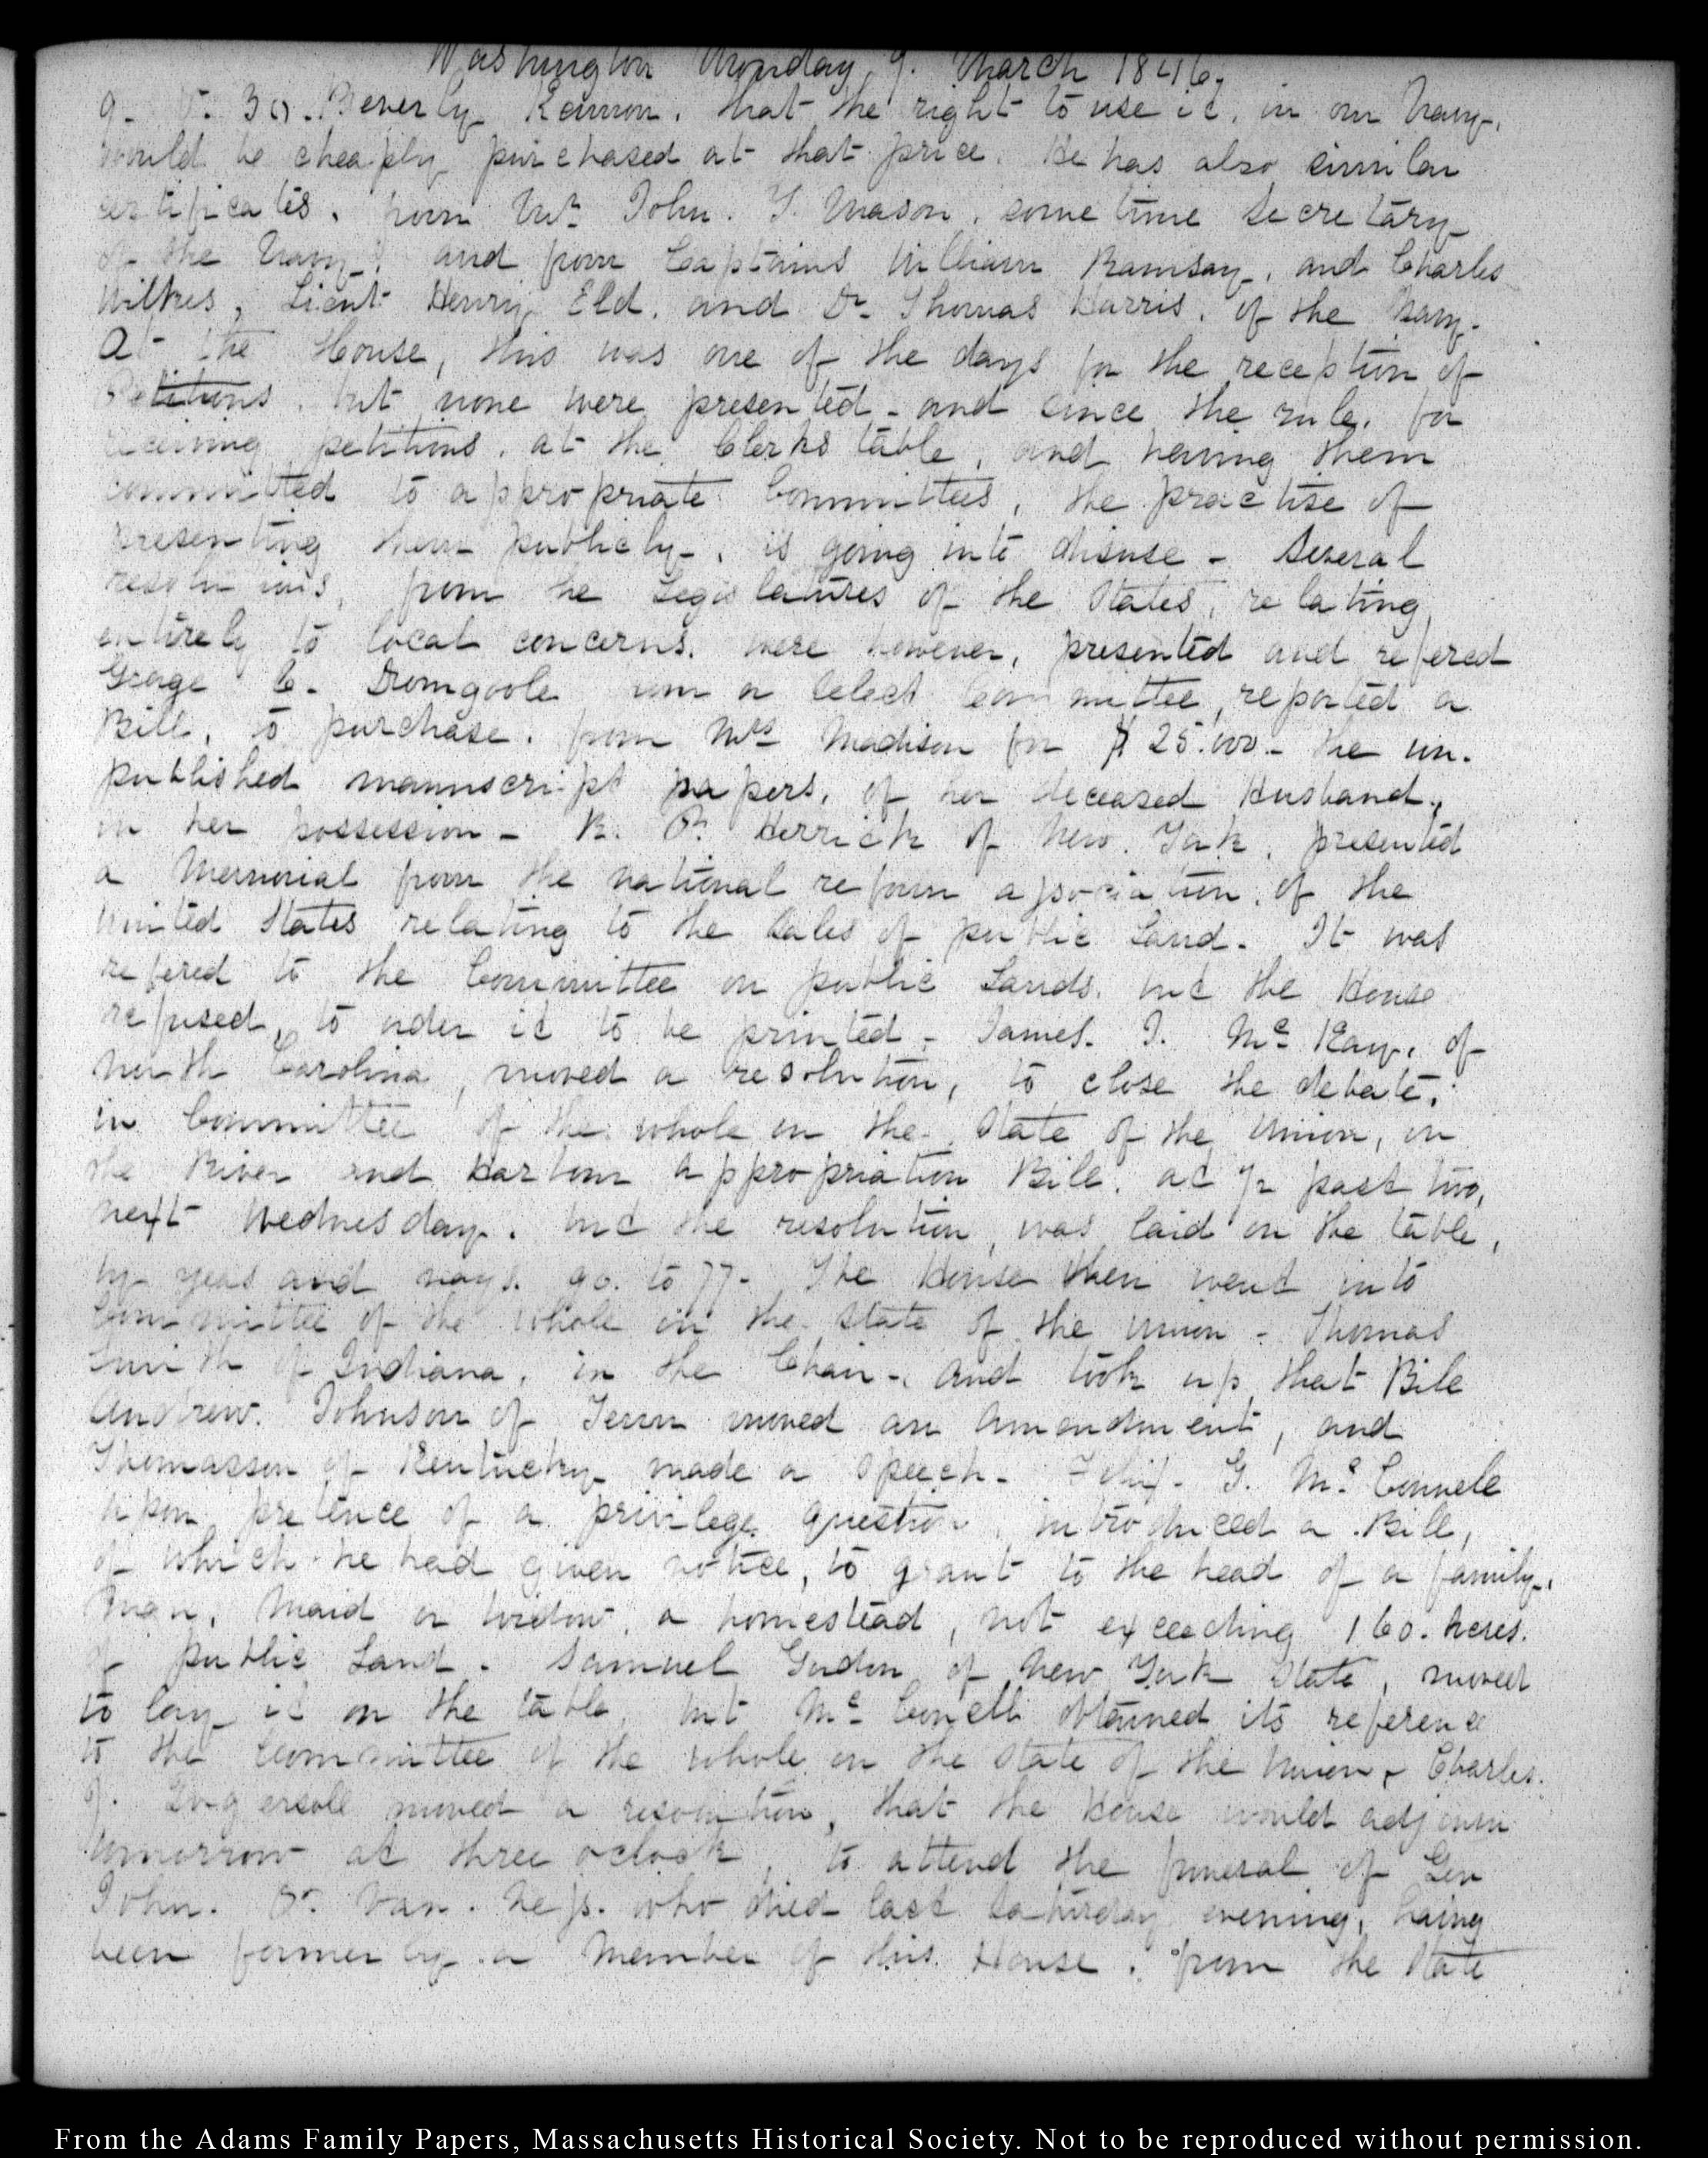 Washington Monday 9. March 1846.
9. V. 30. Beverly Kennon. that the right to use it, in our Navy,
would be cheaply purchased at that price. He has also similar
certificates, from Mr. John. Y. Mason, sometime Secretary
of the Navy, and from Captains William Ramsay, and Charles
Wilkes, Lieut Henry Eld, and Dr. Thomas Harris, of the Navy-
At the House, this was one of the days for the reception of
Petitions, but none were presented - and since the rule, for
receiving petitions, at the Clerks table, and having them
committed to appropriate Committees, the practise of
presenting them publicly, is going into disuse - Several
resolutions, from the Legislatures of the States, relating
entirely to local concerns, were however, presented and refered
George C. Dromgoole from a select committee, reported a
Bill, to purchase, from Mrs Madison for $25.000 - the un-
published manuscript papers, of her deceased Husband,
in her possession - R. P. Herrick of New. York, presented
a Memorial from the national reform association, of the
United States relating to the Sales of public Land - It was
refered to the Committee on public Lands, but the House
refused, to order it to be printed - James. I. McKay, of
North Carolina, moved a resolution, to close the debate,
in Committee of the whole on the State of the Union, on
the River and Harbour Appropriation Bill, at ½ past two,
next Wednesday. but the resolution, was laid on the table,
by yeas and nays. 90. to 77- The House then went into
Committee of the whole on the State of the Union - Thomas
Smith of Indiana, in the Chair -, and took up that Bill
Andrew. Johnson of Tenn moved an Amendment, and
Thomasson of Kentucky made a Speech - Felix. G. McConnell
upon pretence of a privilege question, introduced a Bill,
of which he had given notice, to grant to the head of a family,
Man, Maid or widow, a homestead, not exceeding 160. Acres.
of public Land. Samuel Gordon, of New York State, moved
to lay it on the table, but McConnell obtained its reference
to the Committee of the whole on the State of the Union - Charles.
J. Ingersoll moved a resolution, that the House would adjourn
tomorrow at three o'clock, to attend the funeral of Gen
John. P. Van. Ness. who died last Saturday evening, having
been formerly a Member of this House. from the State
From the Adams Family Papers, Massachusetts Historical Society. Not to be reproduced without permission.